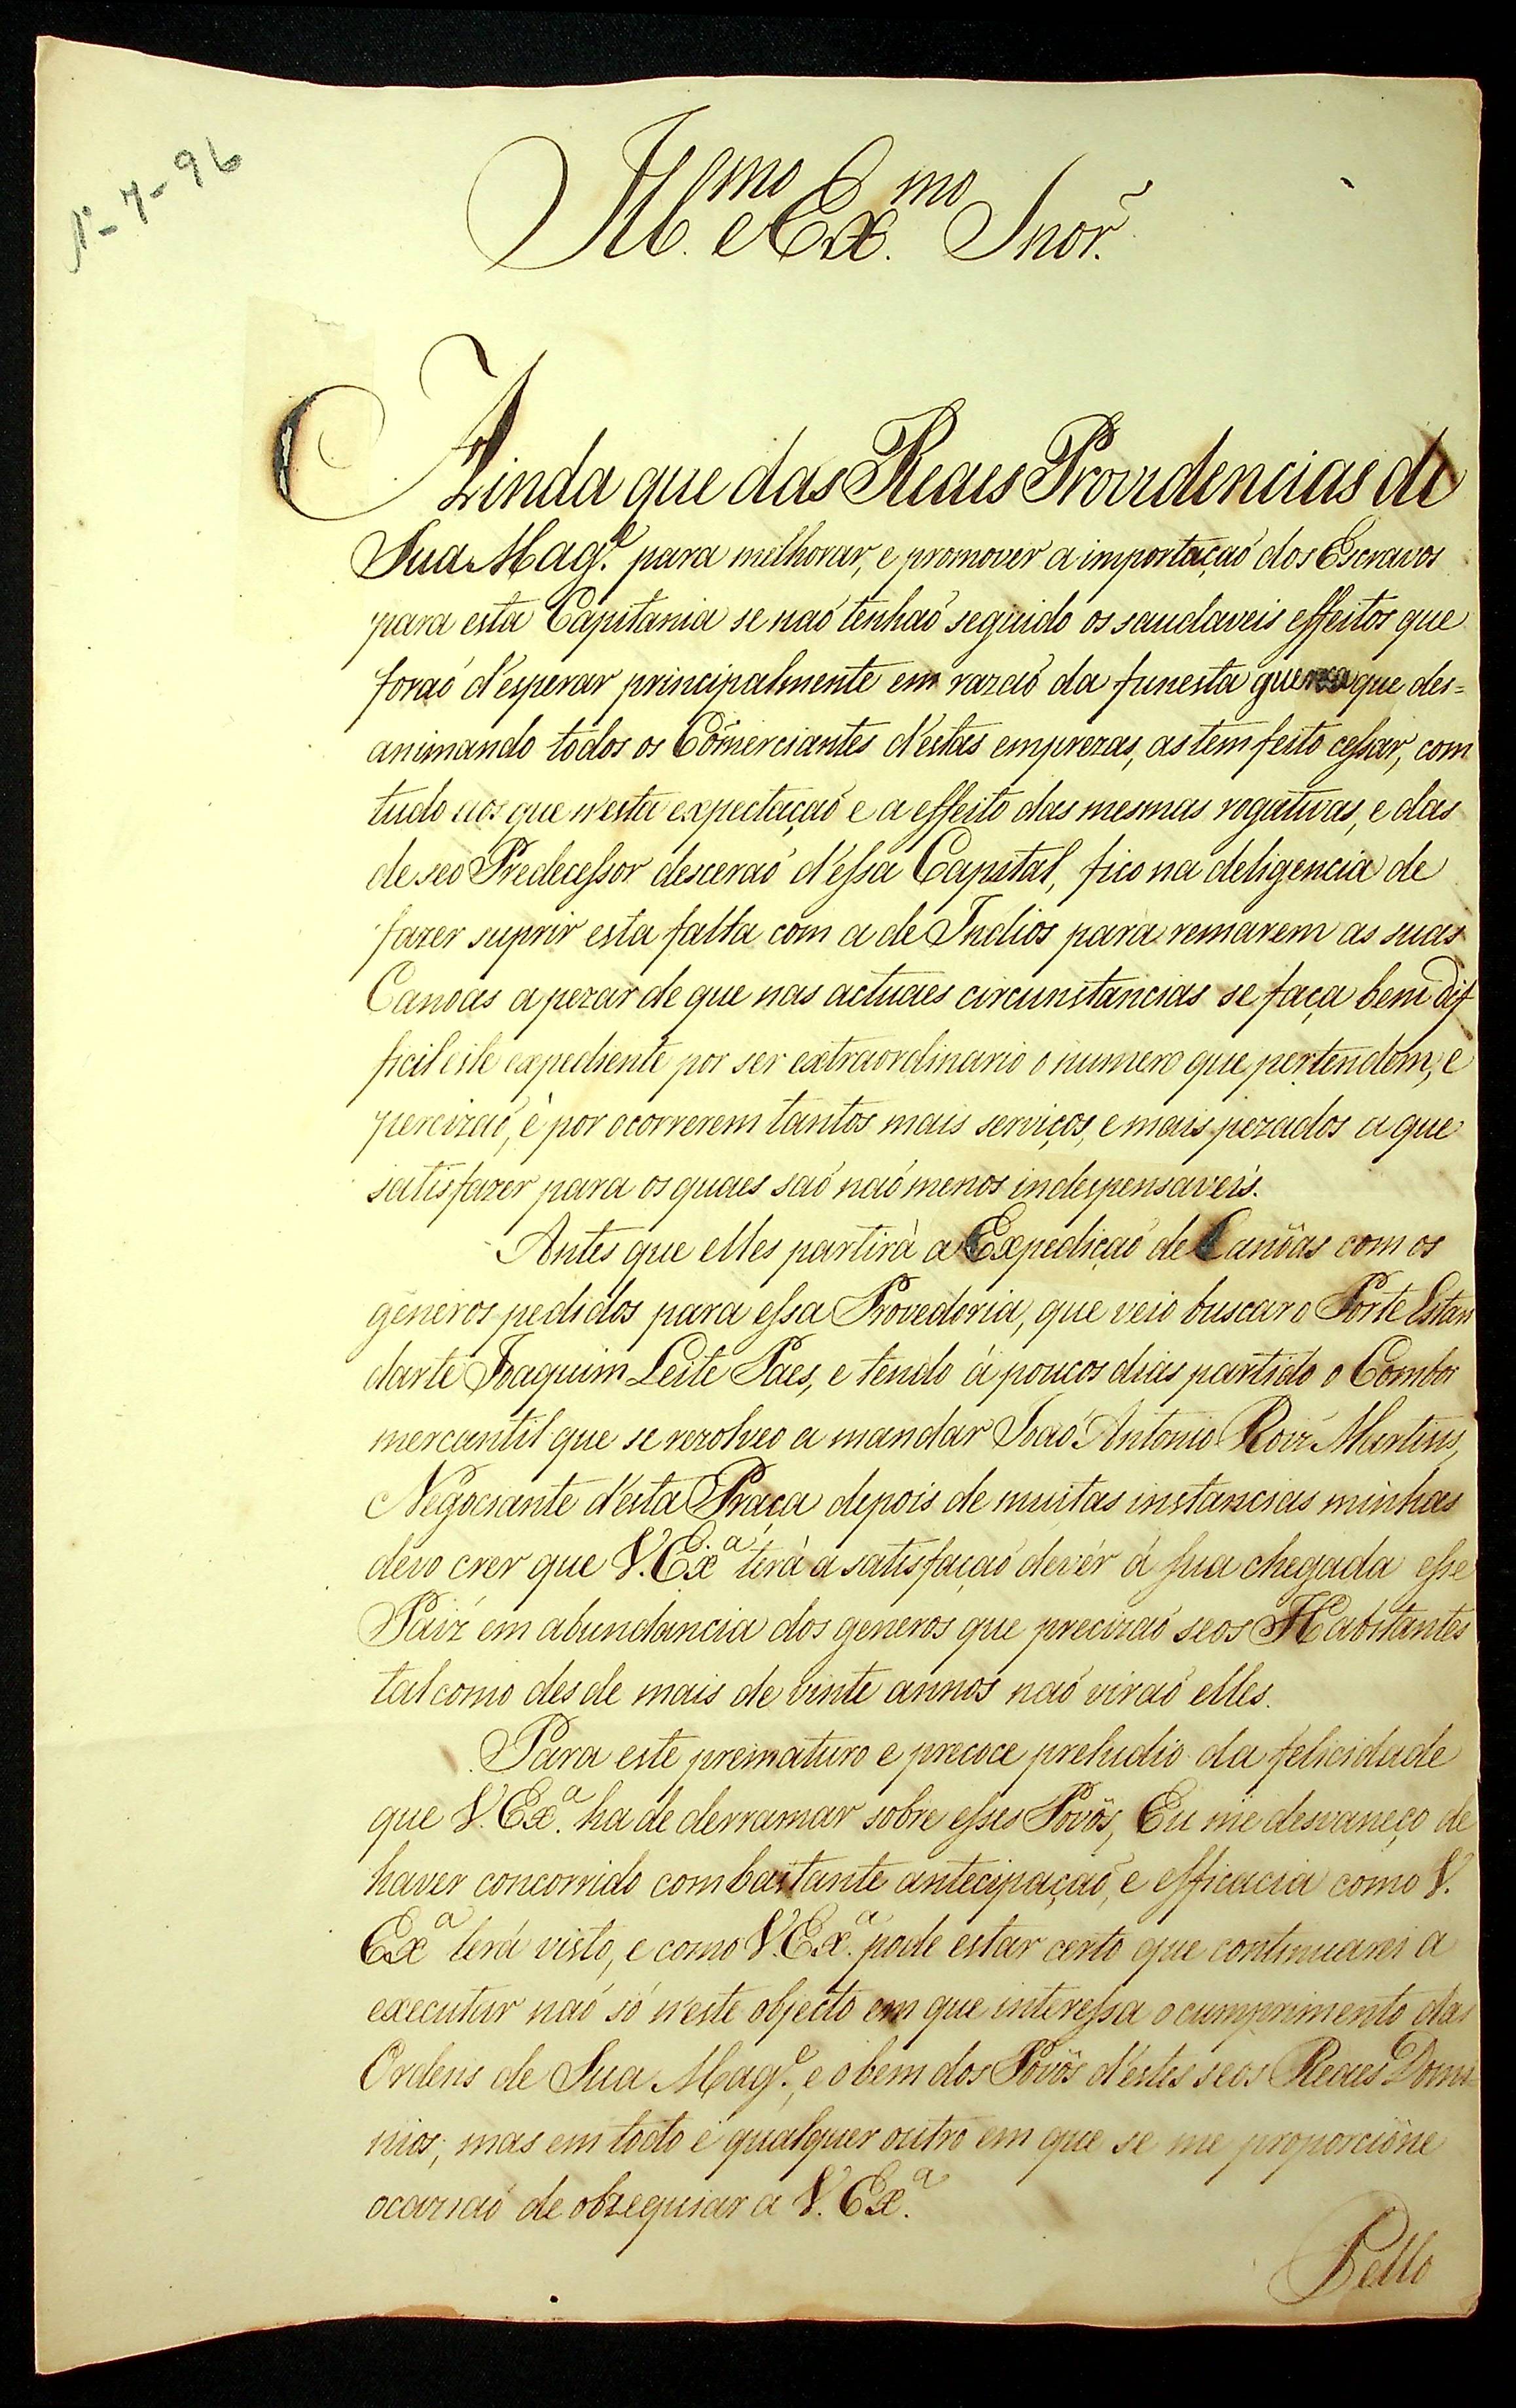 1-7-96
Ill.mo e Ex.mo Snor͂.
Ainda que das Reaes Providencias de
Sua Mag.e para melhorar, e promover a importaçaõ dos Escravos
para esta Capitania se naõ tenhaõ seguido os saudaveis effeitos que
foraõ d'esperar principalmente em razaõ da funesta guerra que des=
animando todos os Com̃erciantes d'estas emprezas, as tem feito cessar, com
tudo aos que n'esta expectaçaõ e a effeito das mesmas rogativas, e das
de seo Predecessor desceraõ d'essa Capital, fico na deligencia de
fazer suprir esta falta com a de Indios para remarem as suas
Canoas apezar de que nas actuaes circunstancias se faça bem dif
ficil este expediente por ser extraordinario o numero que pertendem, e
percizaõ, e por ocorrerem tantos mais serviços, e mais pezados a que
satisfazer para os quaes saõ naõ menos indespensaveis.
Antes que elles partirà a Expediçaõ de Canôas com os
generos pedidos para essa Provedoria, que veio buscar o Porte Estan
darte Joaquim Leite Paes, e tendo á poucos dias partido o Comboi
mercantil que se rezolveo a mandar Joaõ Antonio Roiz Martins,
Negociante d'esta Praça depois de muitas instancias minhas
devo crer que V. Ex.a terá a satisfaçaõ de vér á sua chegada esse
Paiz em abundancia dos generos que precizaõ seos Habitantes
tal como desde mais de vinte annos naõ viraõ elles.
Para este prematuro e precoce preludio da felicidade
que V. Ex.a ha de derramar sobre esses Povôs, Eu me desvaneço de
haver concorrido com bastante antecipaçaõ, e efficacia como V.
Ex.a terá visto, e como V. Ex.a pode estar certo que continuarei a
executar naõ só n'este objecto em que interessa o cumprimento das
Ordens de Sua Mag.e, e o bem dos Povôs d'estes seos Reaes Domi
nios; mas em todo e qualquer outro em que se me proporcione
ocaziaõ de obzequiar a V. Ex.a
Pello